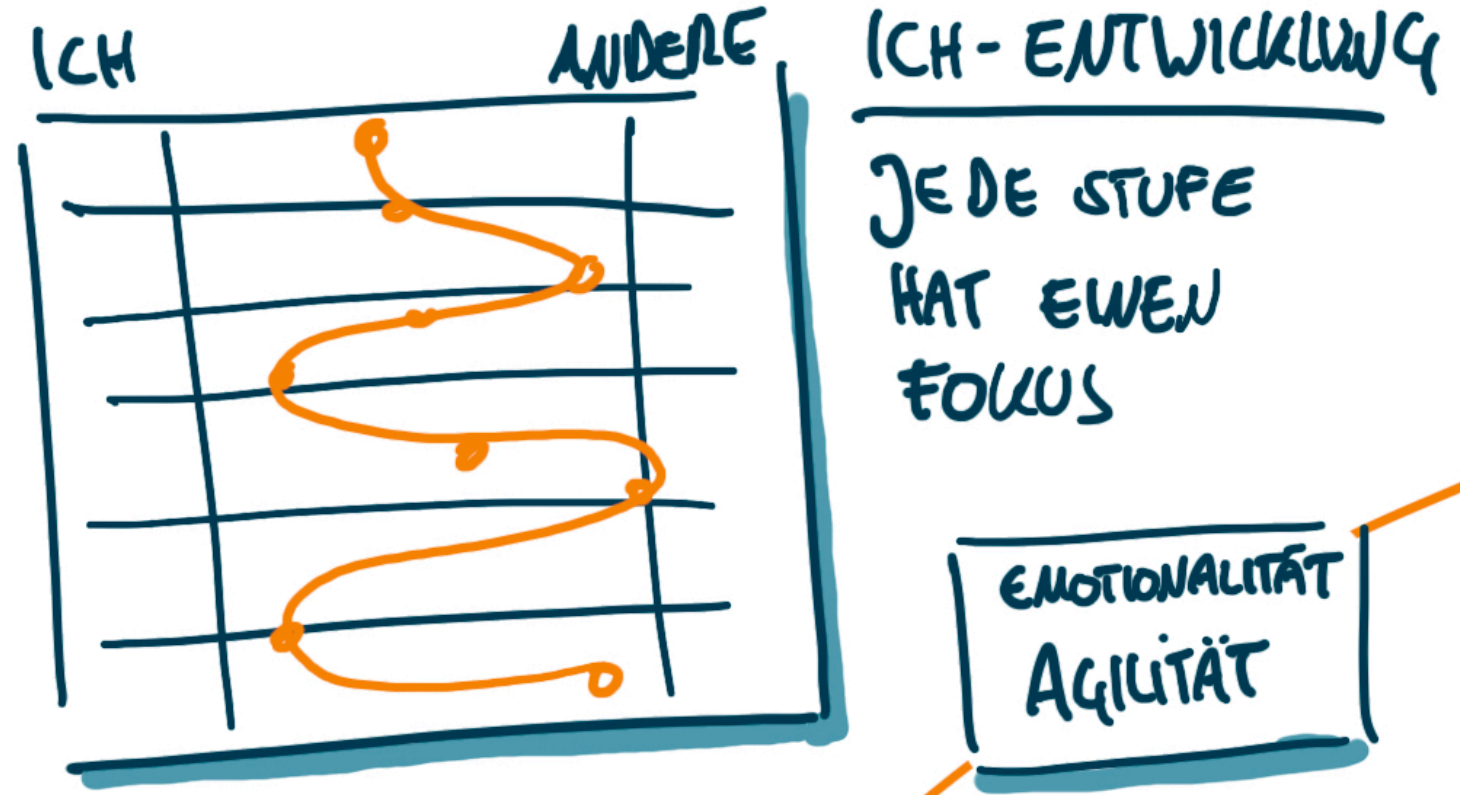 ICH
ANDERE
ICH-ENTWICKLUNG
JEDE STUFE
HAT EINEN
FOKUS
EMOTIONALITÄT
AGILITÄT